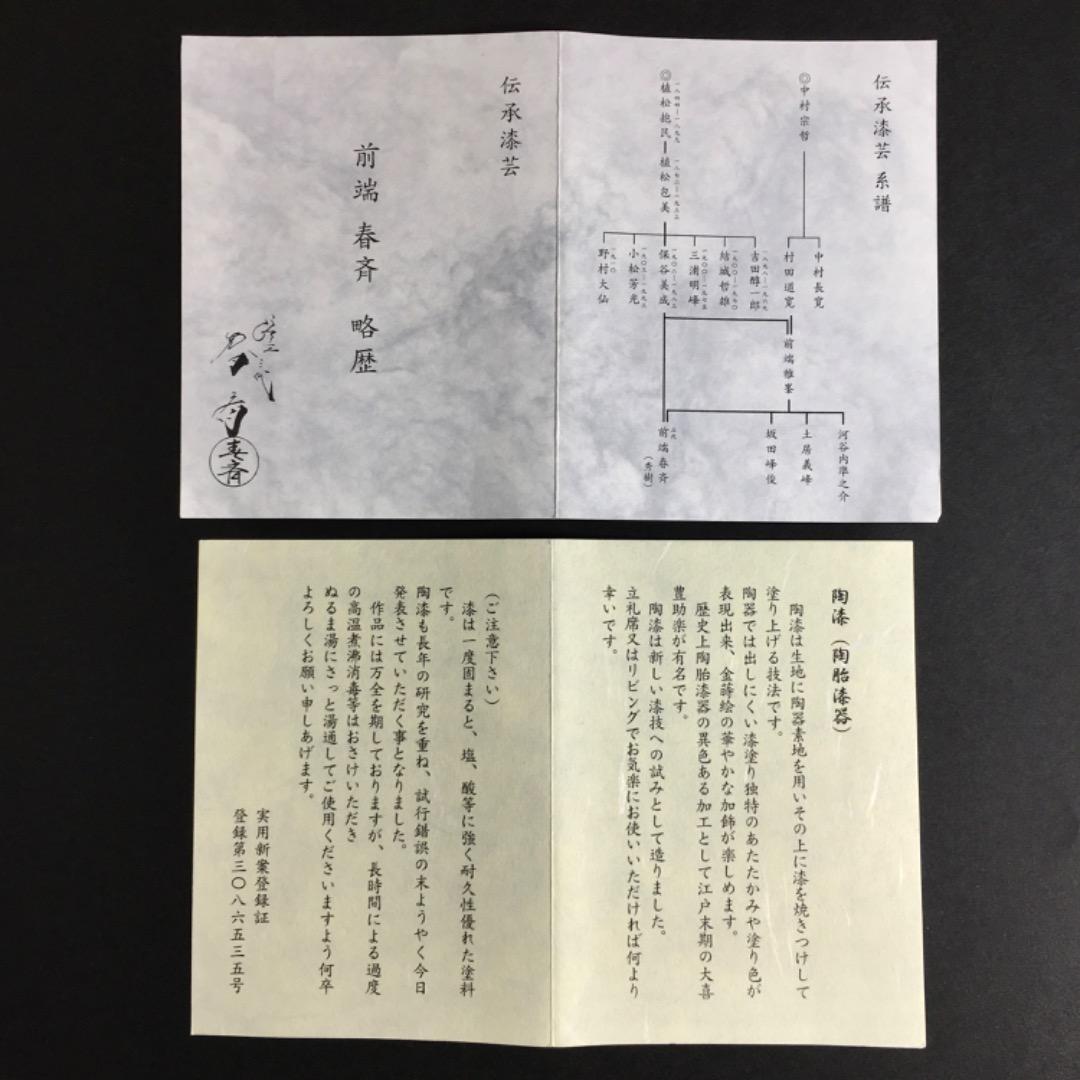 伝承漆芸 系譜
◎中村宗哲
中村長寛
村田道寛
前端雅峯
◎植松抱民
一八七二ー一九三三
植松包美
吉田醇一郎
一九〇〇ー一九七〇
結城哲雄
一九〇〇ー一九七五
三浦明峰
保谷美成
小松芳光
一九一〇
野村大仙
河谷内準之介
土居義峰
坂田峰俊
三代
前端春斉
(秀樹)
伝承漆芸
前端 春斉 略歴
春斉
陶漆(陶胎漆器)
陶漆は生地に陶器素地を用いその上に漆を焼きつけして
塗り上げる技法です。
陶器では出しにくい漆塗り独特のあたたかみや塗り色が
表現出来、金蒔絵の華やかな加飾が楽しめます。
歴史上陶胎漆器の異色ある加工として江戸末期の大喜
豊助楽が有名です。
陶漆は新しい漆技への試みとして造りました。
立礼席又はリビングでお気楽にお使いいただければ何より
幸いです。
(ご注意下さい)
漆は一度固まると、塩、酸等に強く耐久性優れた塗料
です。
陶漆も長年の研究を重ね、試行錯誤の末ようやく今日
発表させていただく事となりました。
作品には万全を期しておりますが、長時間による過度
の高温煮沸消毒等はおさけいただき
ぬるま湯にさっと湯通してご使用くださいますよう何卒
よろしくお願い申しあげます。
実用新案登録証
登録第三〇八六五三五号